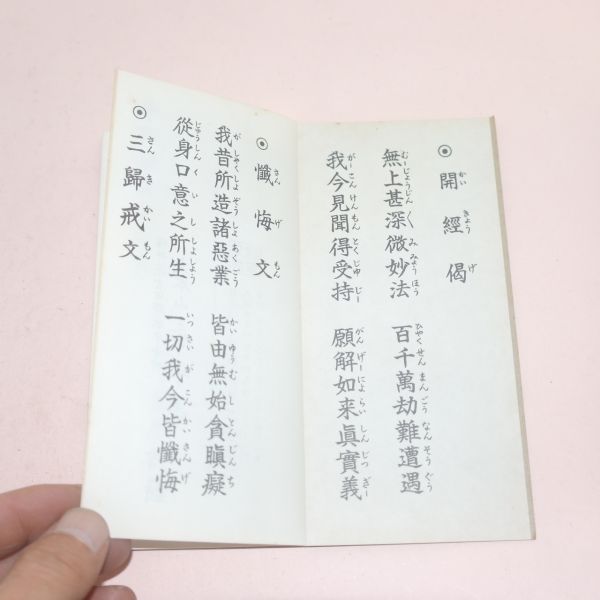 ◉ 開經偈
無上甚深微妙法 百千萬劫難遭遇
我今見聞得受持 願解如來眞實義
◉ 懺悔文
我昔所造諸惡業 皆由無始貪瞋癡
從身口意之所生 一切我今皆懺悔
◉ 三歸戒文